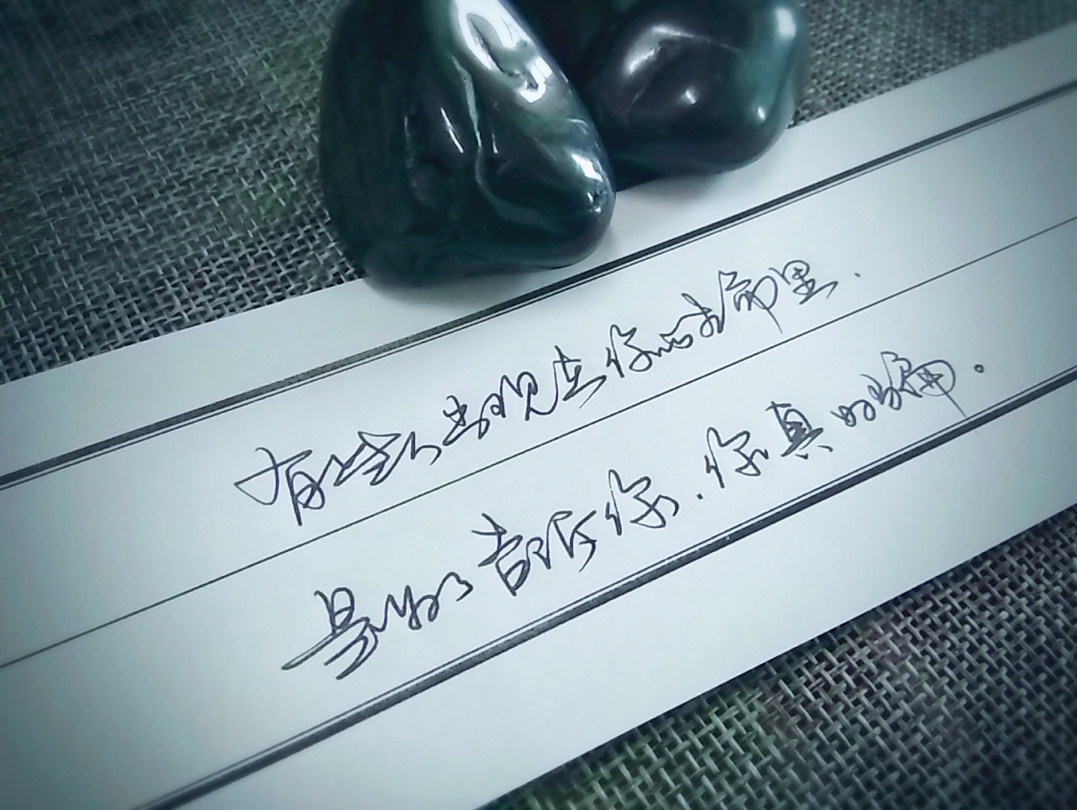 有些人出现在你的生命里.
是为了告诉你.你真好骗。